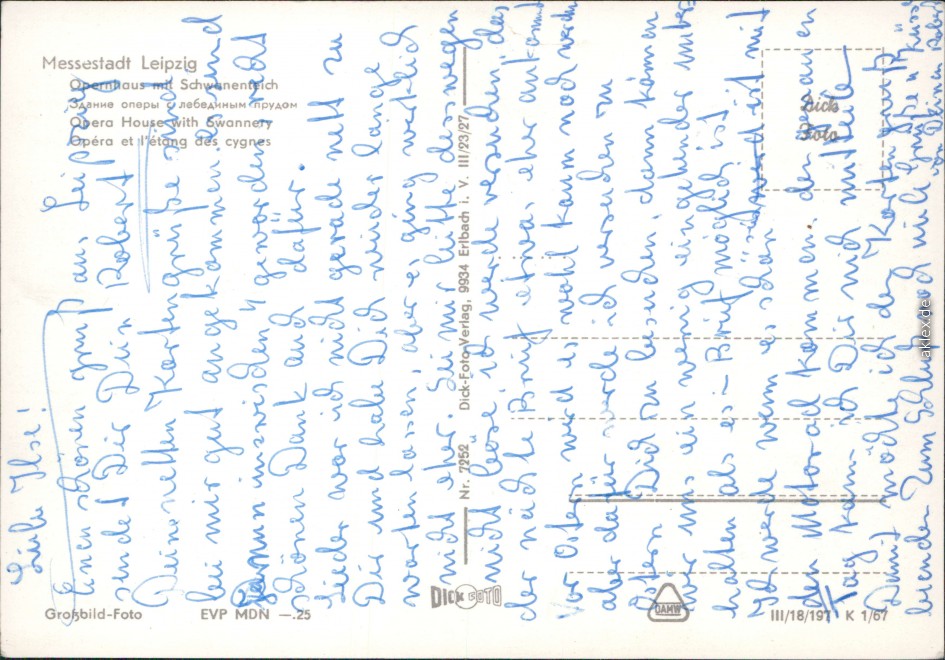 Messestadt Leipzig
Opernhaus mit Schwanenteich
Здание оперы с лебединым прудом
Opera House with Swannery
Opéra et l'étang des cygnes
Dick
Foto
Nr. 7252 Dick-Foto-Verlag, 9934 Erlbach i. V. III/23/27
DICK FOTO
DAMW
Großbild-Foto EVP MDN —.25
III/18/197 K 1/67
Liebe Ilse!
Einen schönen Gruß aus Leipzig
sendet Dir Dein Robert
Deine netten Kartengrüße sind
bei mir gut angekommen es sind
inzwischen geworden, recht
schönen Dank auch dafür.
Leider war ich nicht gerade nett zu
Dir und habe Dich wieder lange
warten lassen, aber es ging wirklich
nicht eher. Sei mir bitte deswegen
nicht böse ich werde versuchen, das
der nächste Brief etwas eher ankommt
Vor Ostern wird es wohl kaum noch werden
aber dafür werde ich versuchen zu
Ostern Dich zu besuchen, dann können
wir uns ein wenig eingehender unter-
halten als es – Brief möglich ist.
Ich werde wenn es schön ist mit
den Motorrad kommen. den genauen
Tag kann ich Dir noch mitteilen
Damit möchte ich den Kartengruß
beenden Zum Schluß noch viele Grüße u. Küsse
von Deinen Robert
aklex.de